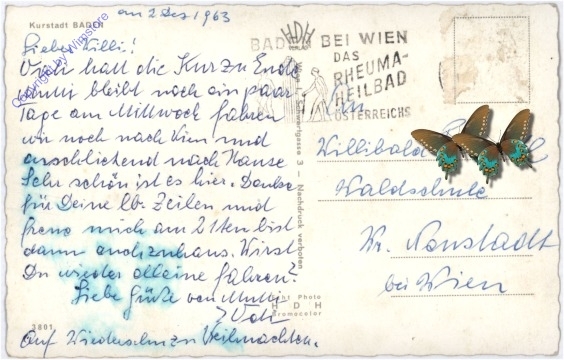 am 2 Dez 1963
Kurstadt BADEN
Lieber Willi!
Vati hatt die Kur zu Ende
Mutti bleibt noch ein paar
Tage am Mittwoch fahren
wir noch nach Wien und
anschliehend nach Hause
Sehr schön ist es hier. Danke
für Deine lb. Zeilen und
freue mich am 21ten bist
dann auch zuhaus. Wirst
Du wieder alleine fahren?
Liebe Grüße von Mutti
Vati
Auf Wiedersehn zu Weihnachten.
3801
Echt Photo
HDH
Bromacolor
3 — Nachdruck verboten
HDH
VERLAG
BADEN BEI WIEN
DAS
RHEUMA-
HEILBAD
ÖSTERREICHS
Willibald
Waldschule
Wr. Neustadt
bei Wien
Copyright by Winstore